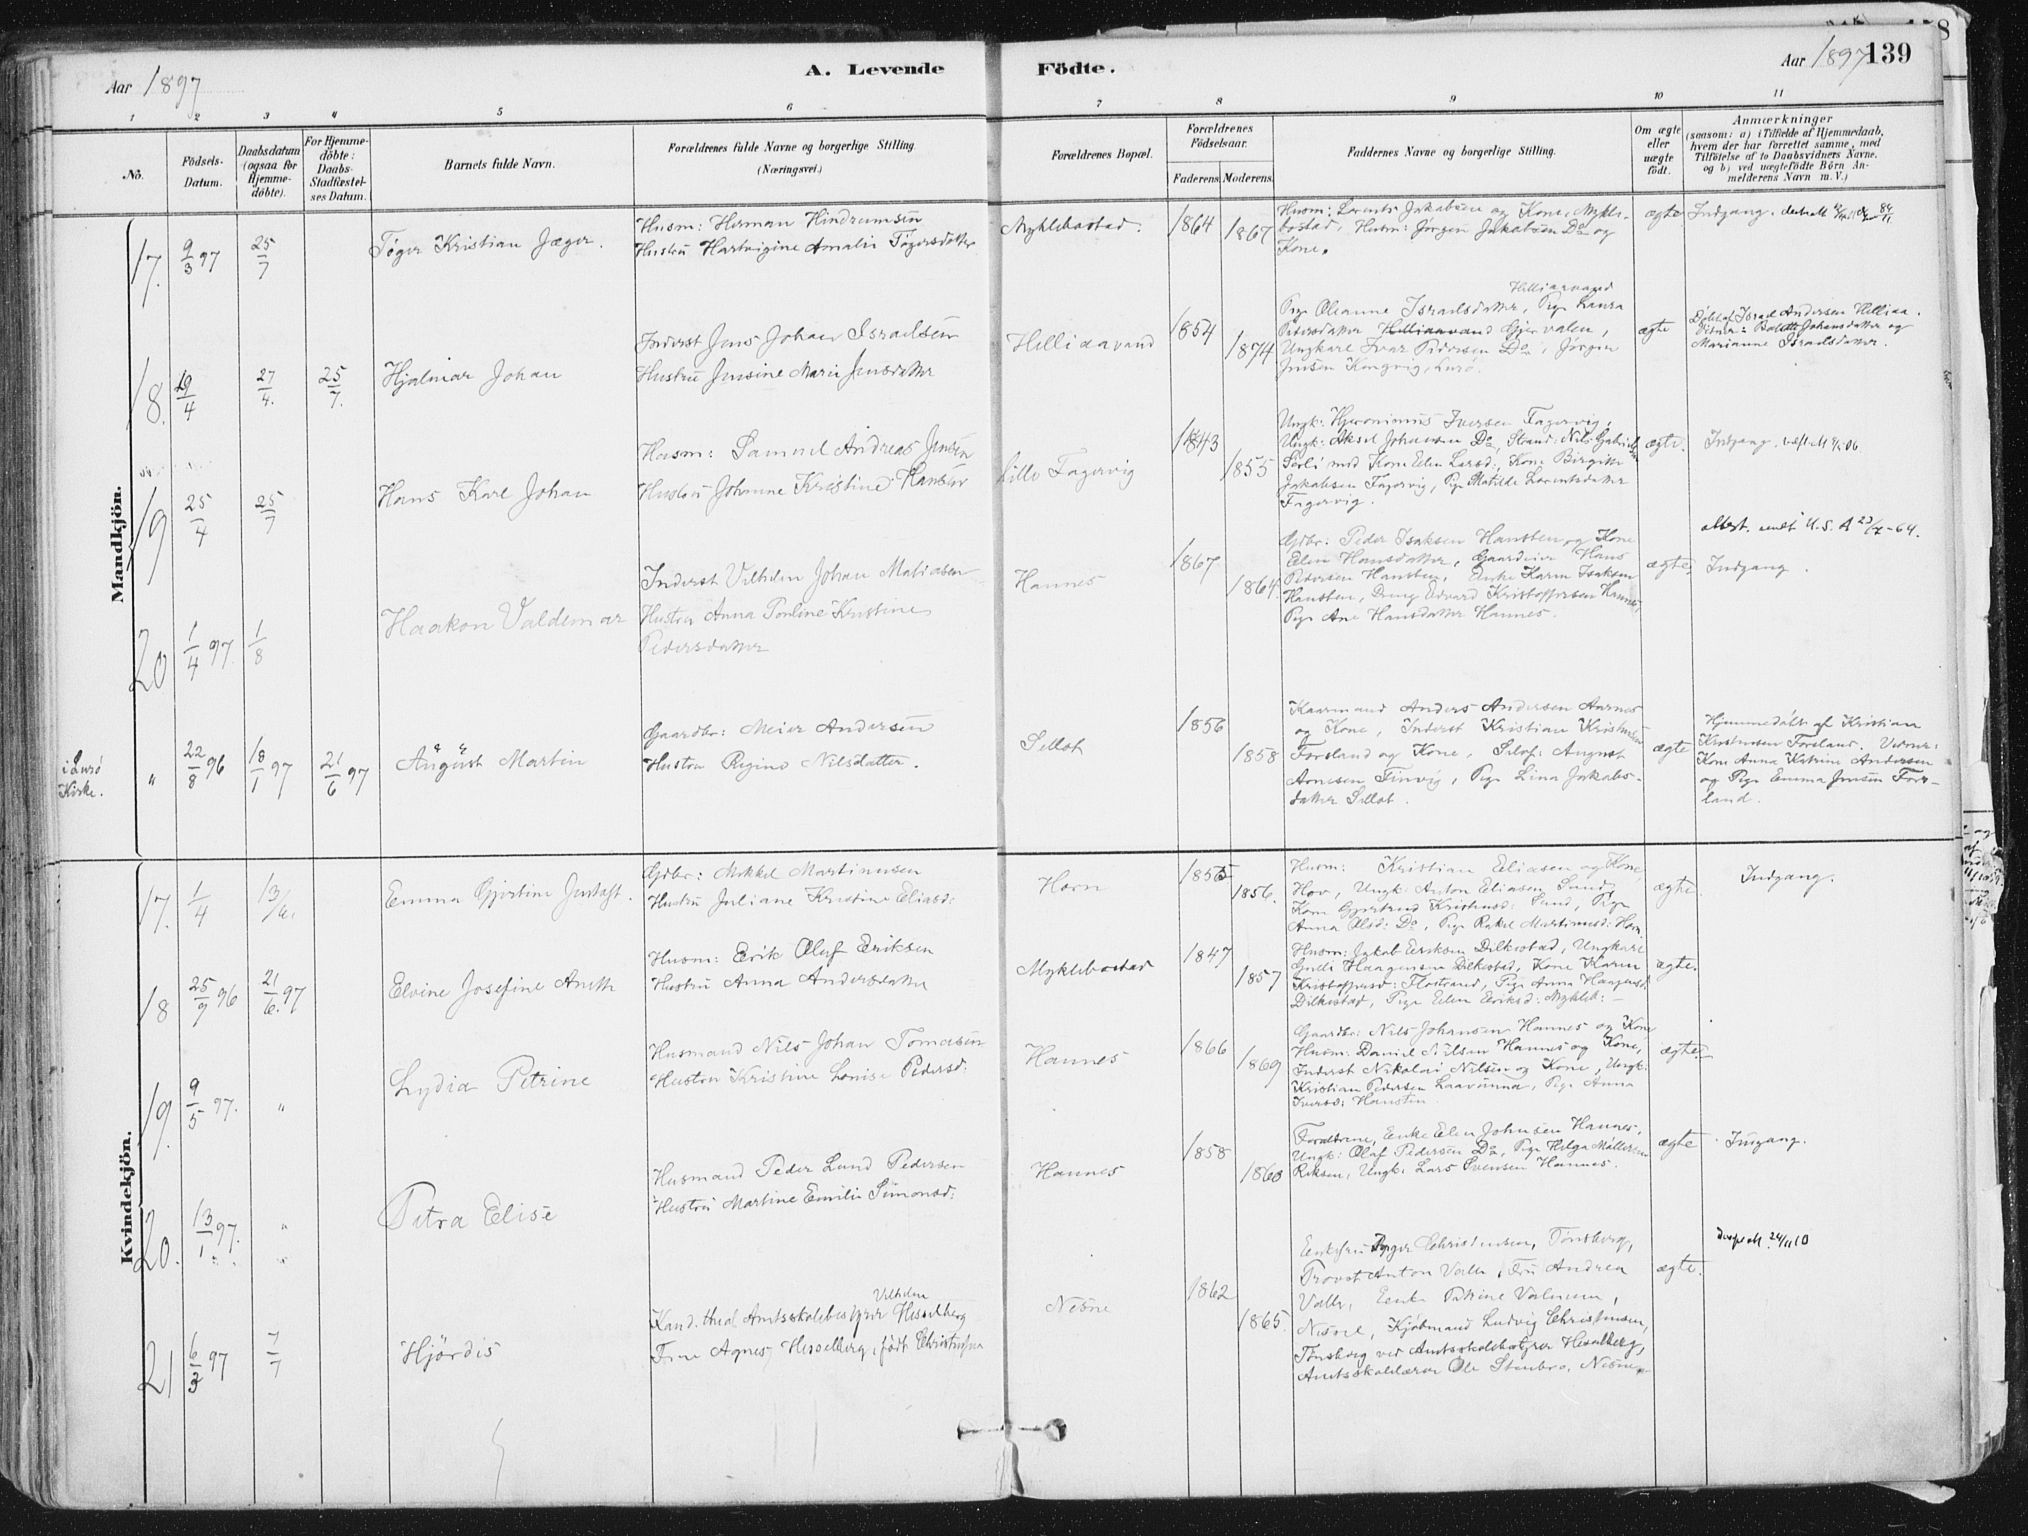 Aar 1897
A. Levende Födte.
Aar 1897 139
1 2 3 4 5 6 7 8 9 10 11
No.
Födsels-Datum.
Daabsdatum (ogsaa for Hjemmedöbte).
For Hjemmedöbte: Daabs-Stadfæstelses Datum.
Barnets fulde Navn.
Forældrenes fulde Navne og borgerlige Stilling (Næringsvei.)
Forældrenes Bopæl.
Forældrenes Födselsaar.
Faderens. Moderens.
Faddernes Navne og borgerlige Stilling.
Om ægte eller uægte födt.
Anmærkninger
(saasom: a) i Tilfælde af Hjemmedaab, hvem der har forrettet samme, med Tilföielse af to Daabsvidners Navne, og b) ved uægtefödte Börn Anmelderens Navn m. V.)
Mandkjön.
17. 9/3 97 25/7
Töger Kristian Jæger.
Husm: Herman Hindrumsen
Hustru Hartvigine Amalie Tögersdatter
Myklebostad.
1864 1867
Husm: Lorents Jakobsen og Kone, Mykle-
bostad, Husm: Jørgen Jakobsen Do og
Kone.
ægte Indgang.
18. 19/4 27/4. 25/7.
Hjalmar Johan
Inderst Jens Johan Israelsen
Hustru Jensine Marie Jensdatter
Helliaavand
1854 1874
Helliaavand
Pige Oleanne Israelsdatter, Pige Laura
Pedersdatter Helliaavand Gjervalen,
Ungkarl Ivar Pedersen Do, Jørgen
Jensen Kongsvig, Lurø.
ægte
Döbt af Israel Andersen Helliaa.
Vidner: Bolette Johansdatter og
Marianne Israelsdatter.
19 25/4 25/7
Hans Karl Johan
Husm: Samuel Andreas Jensen
Hustru Johanne Kristine Hansen
Lille Fagervig
1843 1855
Ungk: Hyeronimus Iversen Fagervig,
Ungk: Aksel Johansen Do, Strand: Nils Gabrielsen
Sørli med Kone Elen Larsd:, Kone Birgitte
Jakobsen Fagervig, Pige Matilde Lorentsdatter
Fagervig.
ægte. Indgang.
attest. sendt U.S.A 23/7-64.
20 1/4 97. 1/8
Haakon Valdemar
Inderst Vilhelm Johan Matiasen
Hustru Anna Pauline Kristine
Pedersdatter
Hannes
1867 1864.
Gdbr: Peder Isaksen Hansten og Kone
Elen Hansdatter, Gaardeier Hans
Pedersen Hansten, Enke Karen Isaksen
Hansten, Dreng Edvard Kristoffersen Hannes,
Pige Ane Hansdatter Hannes.
ægte. Indgang.
i Lurö Kirke.
" 22/8 96 18/1 97 21/6 97
August Martin
Gaardbr: Meier Andersen
Hustru Regine Nilsdatter.
Selløt
1856 1858
Kaarmand Anders Andersen Aarnes
og Kone, Inderst Kristian Kristensen
Forsland og Kone, Selvf: August
Arnesen Finvig, Pige Lina Jakobs-
datter Selløt.
ægte
Hjemmedöbt af Kristian
Kristensen Forsland. Vidner:
Kone Anna Katrine Andersen
og Pige Emma Jensen Fors-
land.
Kvindekjön.
17. 1/4 13/6.
Emma Gjertine Justaft.
Gdbr: Mikkel Martinusen
Hustru Juliane Kristine Eliasd:
Horn
1855 1856.
Husm: Kristian Eliasen og Kone,
Hov, Ungk: Anton Eliasen Sund,
Kone Gjertrud Kristensd: Sund, Pige
Anna Olsd: Do, Pige Rakel Martinusd: Horn.
ægte. Indgang.
18 25/9 96 21/6. 97
Elvine Josefine Anette
Husm: Erik Oluf Eriksen
Hustru Anna Andersdatter
Myklebostad
1847 1857
Husm: Jakob Eriksen Dilkestad, Ungkarl
Gulli Haagensen Dilkestad, Kone Karen
Kristoffersd: Flostrand, Pige Anna Haagensd:
Dilkestad, Pige Elen Eriksd: Mykleb:
ægte.
19. 9/5 97. "
Lydia Petrine
Husmand Nils Johan Tomasen
Hustru Kristine Lovise Pedersd:
Hannes
1866 1869
Gaardbr: Nils Johansen Hannes og Kone
Husm: Daniel Nilsen Hannes og Kone,
Inderst Nikolai Nilsen og Kone, Ungk:
Kristian Pedersen Laavunna, Pige Anna
Iversd: Hansten.
ægte.
20. 13/1 97. "
Petra Elise
Husmand Peder Lund Pedersen
Hustru Martine Emilie Simonsd:
Hannes
1858 1860
Forældrene, Enke Elen Johnsen Hannes,
Ungk: Olaf Pedersen Do, Pige Helga Møllersen
Reksen, Ungk: Lars Svensen Hannes.
ægte Indgang.
21 6/3 97 7/7
Hjördis
Kand. theol. Amtsskolebestyrer Vilhelm Hesselberg
Frue Agnes Hesselberg, født Christensen
Nesne
1862 1865.
Enkefru Inger Christensen, Tönsberg,
Provst Anton Valle, Fru Andrea
Valle, Enke Petrine
Nesne, Kjöbmand Ludvig Christensen,
Tönsberg ved Amtsskolebestyrer Hesselberg,
Amtsskolelærer Ole Stenbro, Nesne.
ægte.
24/11 10